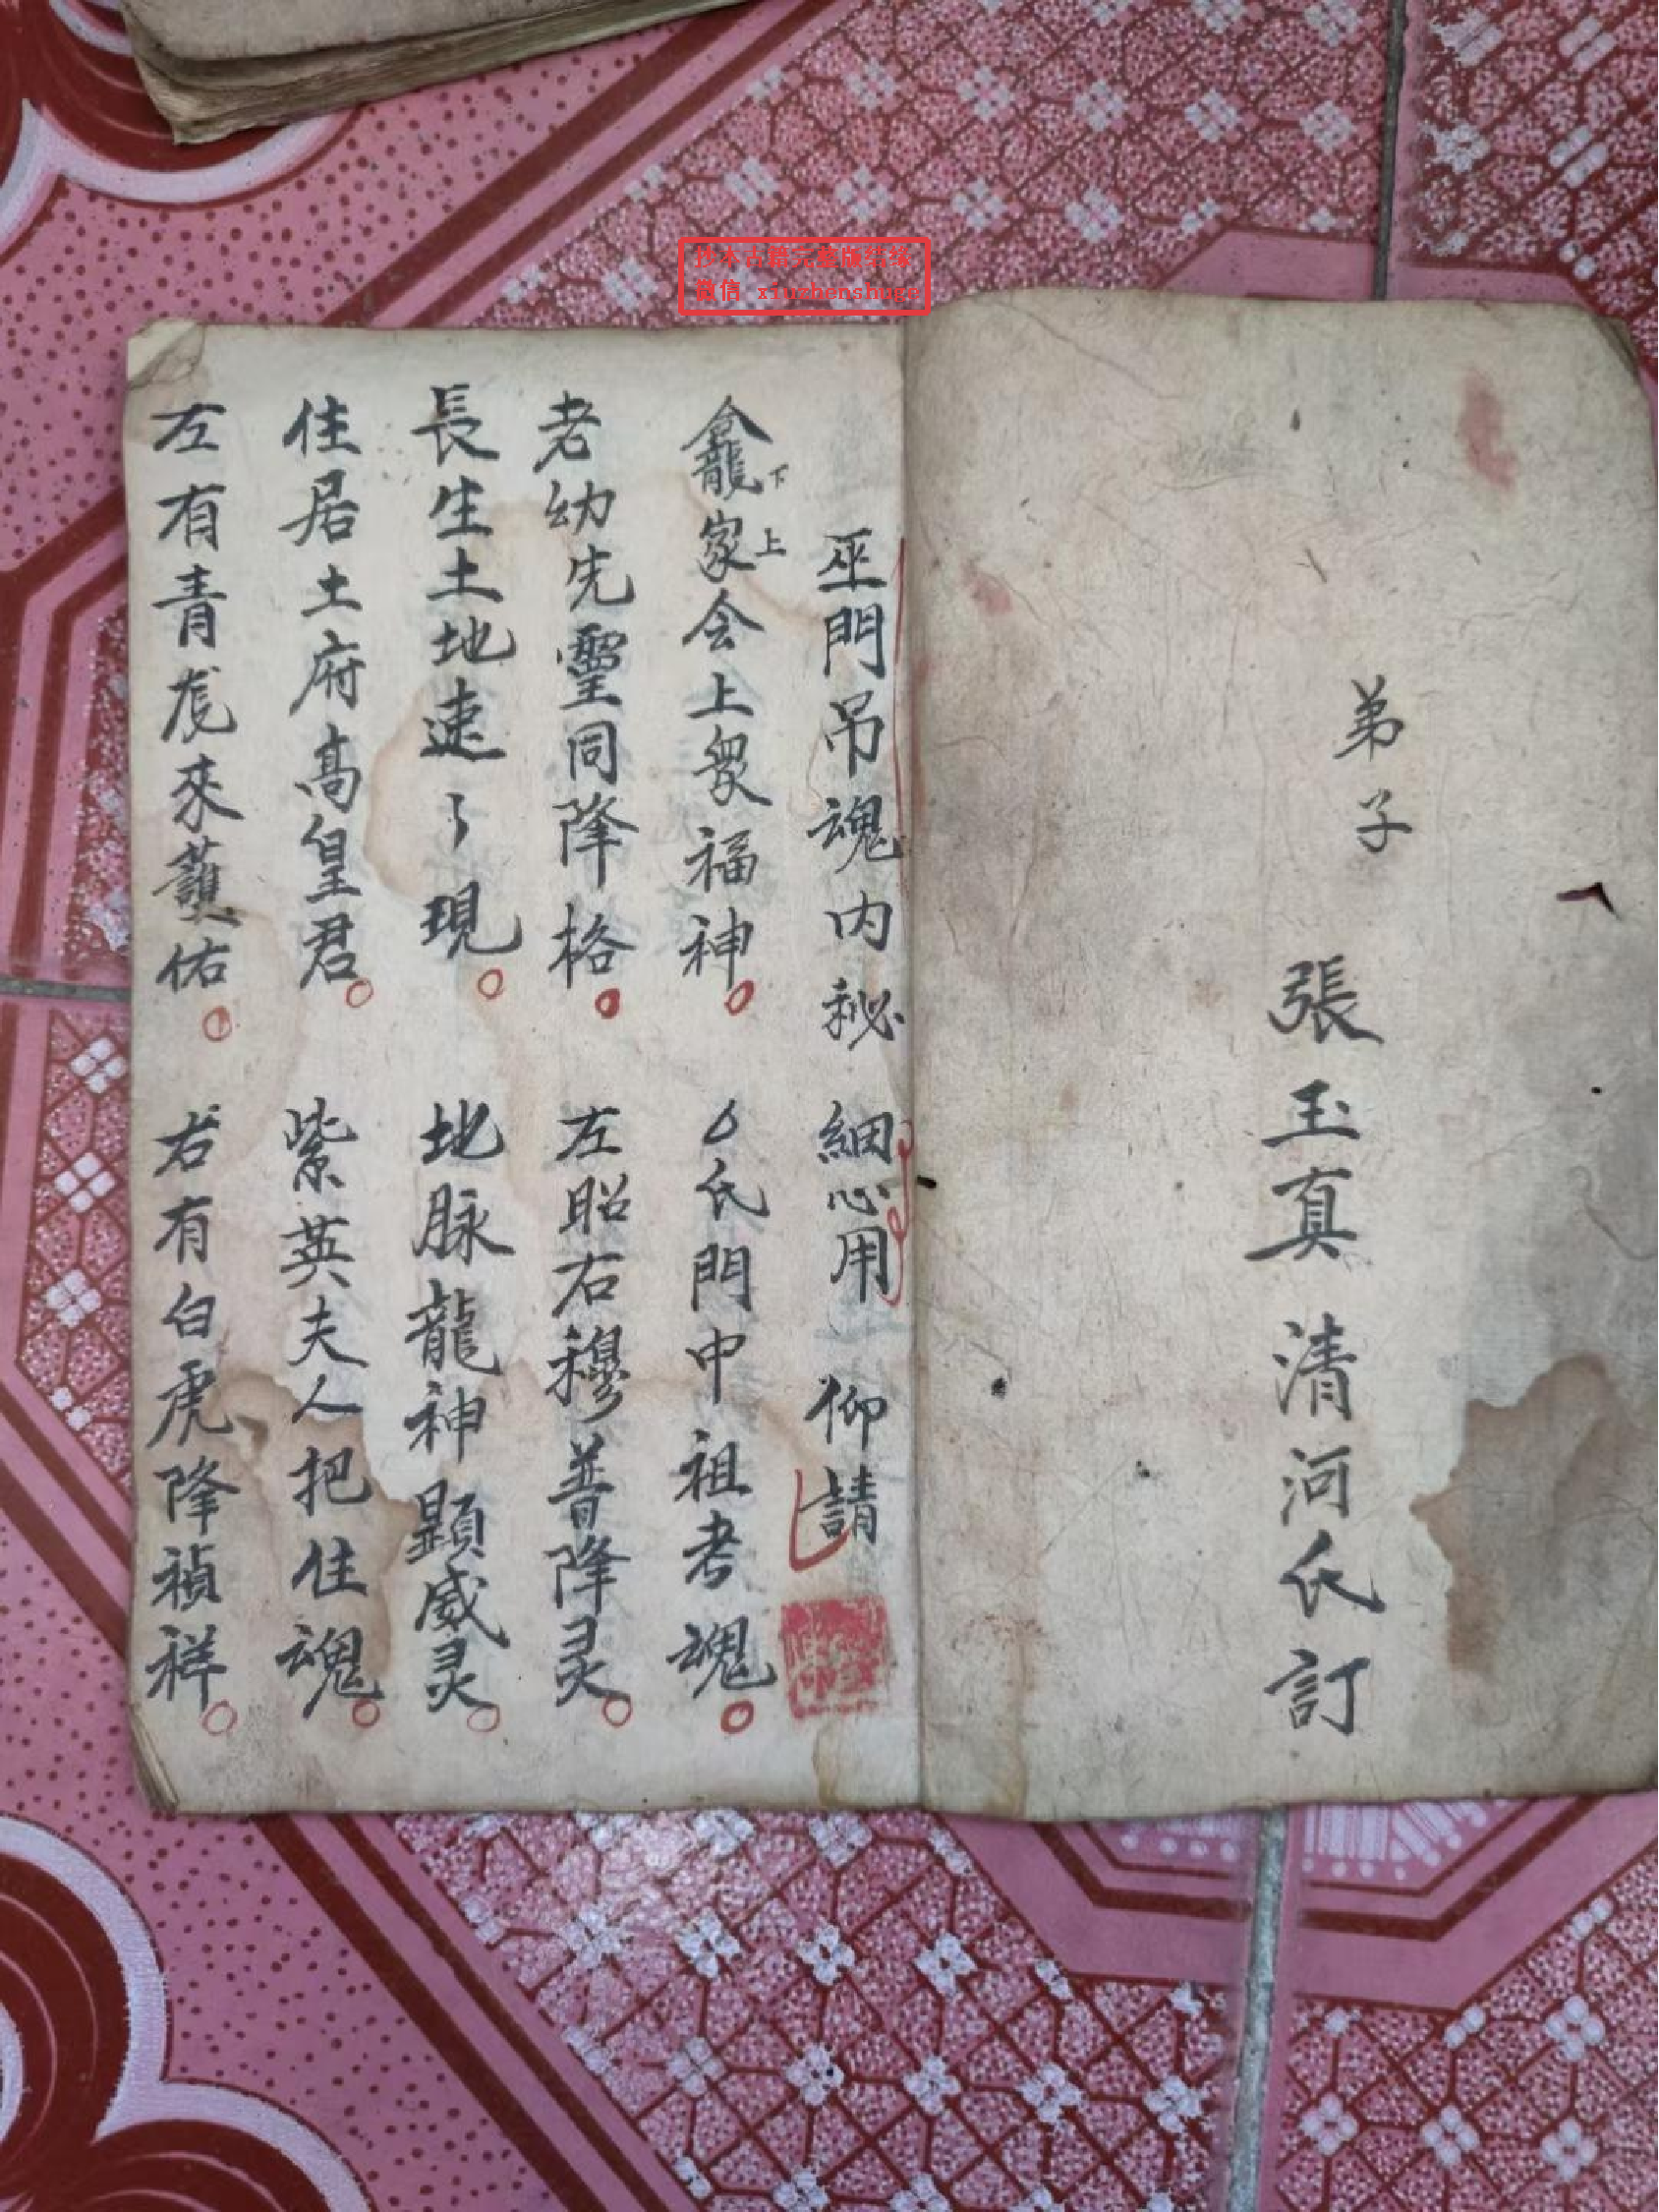 抄本古籍完整版结缘
微信 xiuzhenshuge
弟子
張玉真清河氏訂
巫門吊魂内秘 細心用 仰請
龕下家上会上衆福神 氏門中祖考魂
老幼先靈同降格 左昭右穆普降灵
長生土地速了現 地脉龍神顕威灵
住居土府高皇君 紫英夫人把住魂
左有青虎來護佑 右有白虎降禎祥